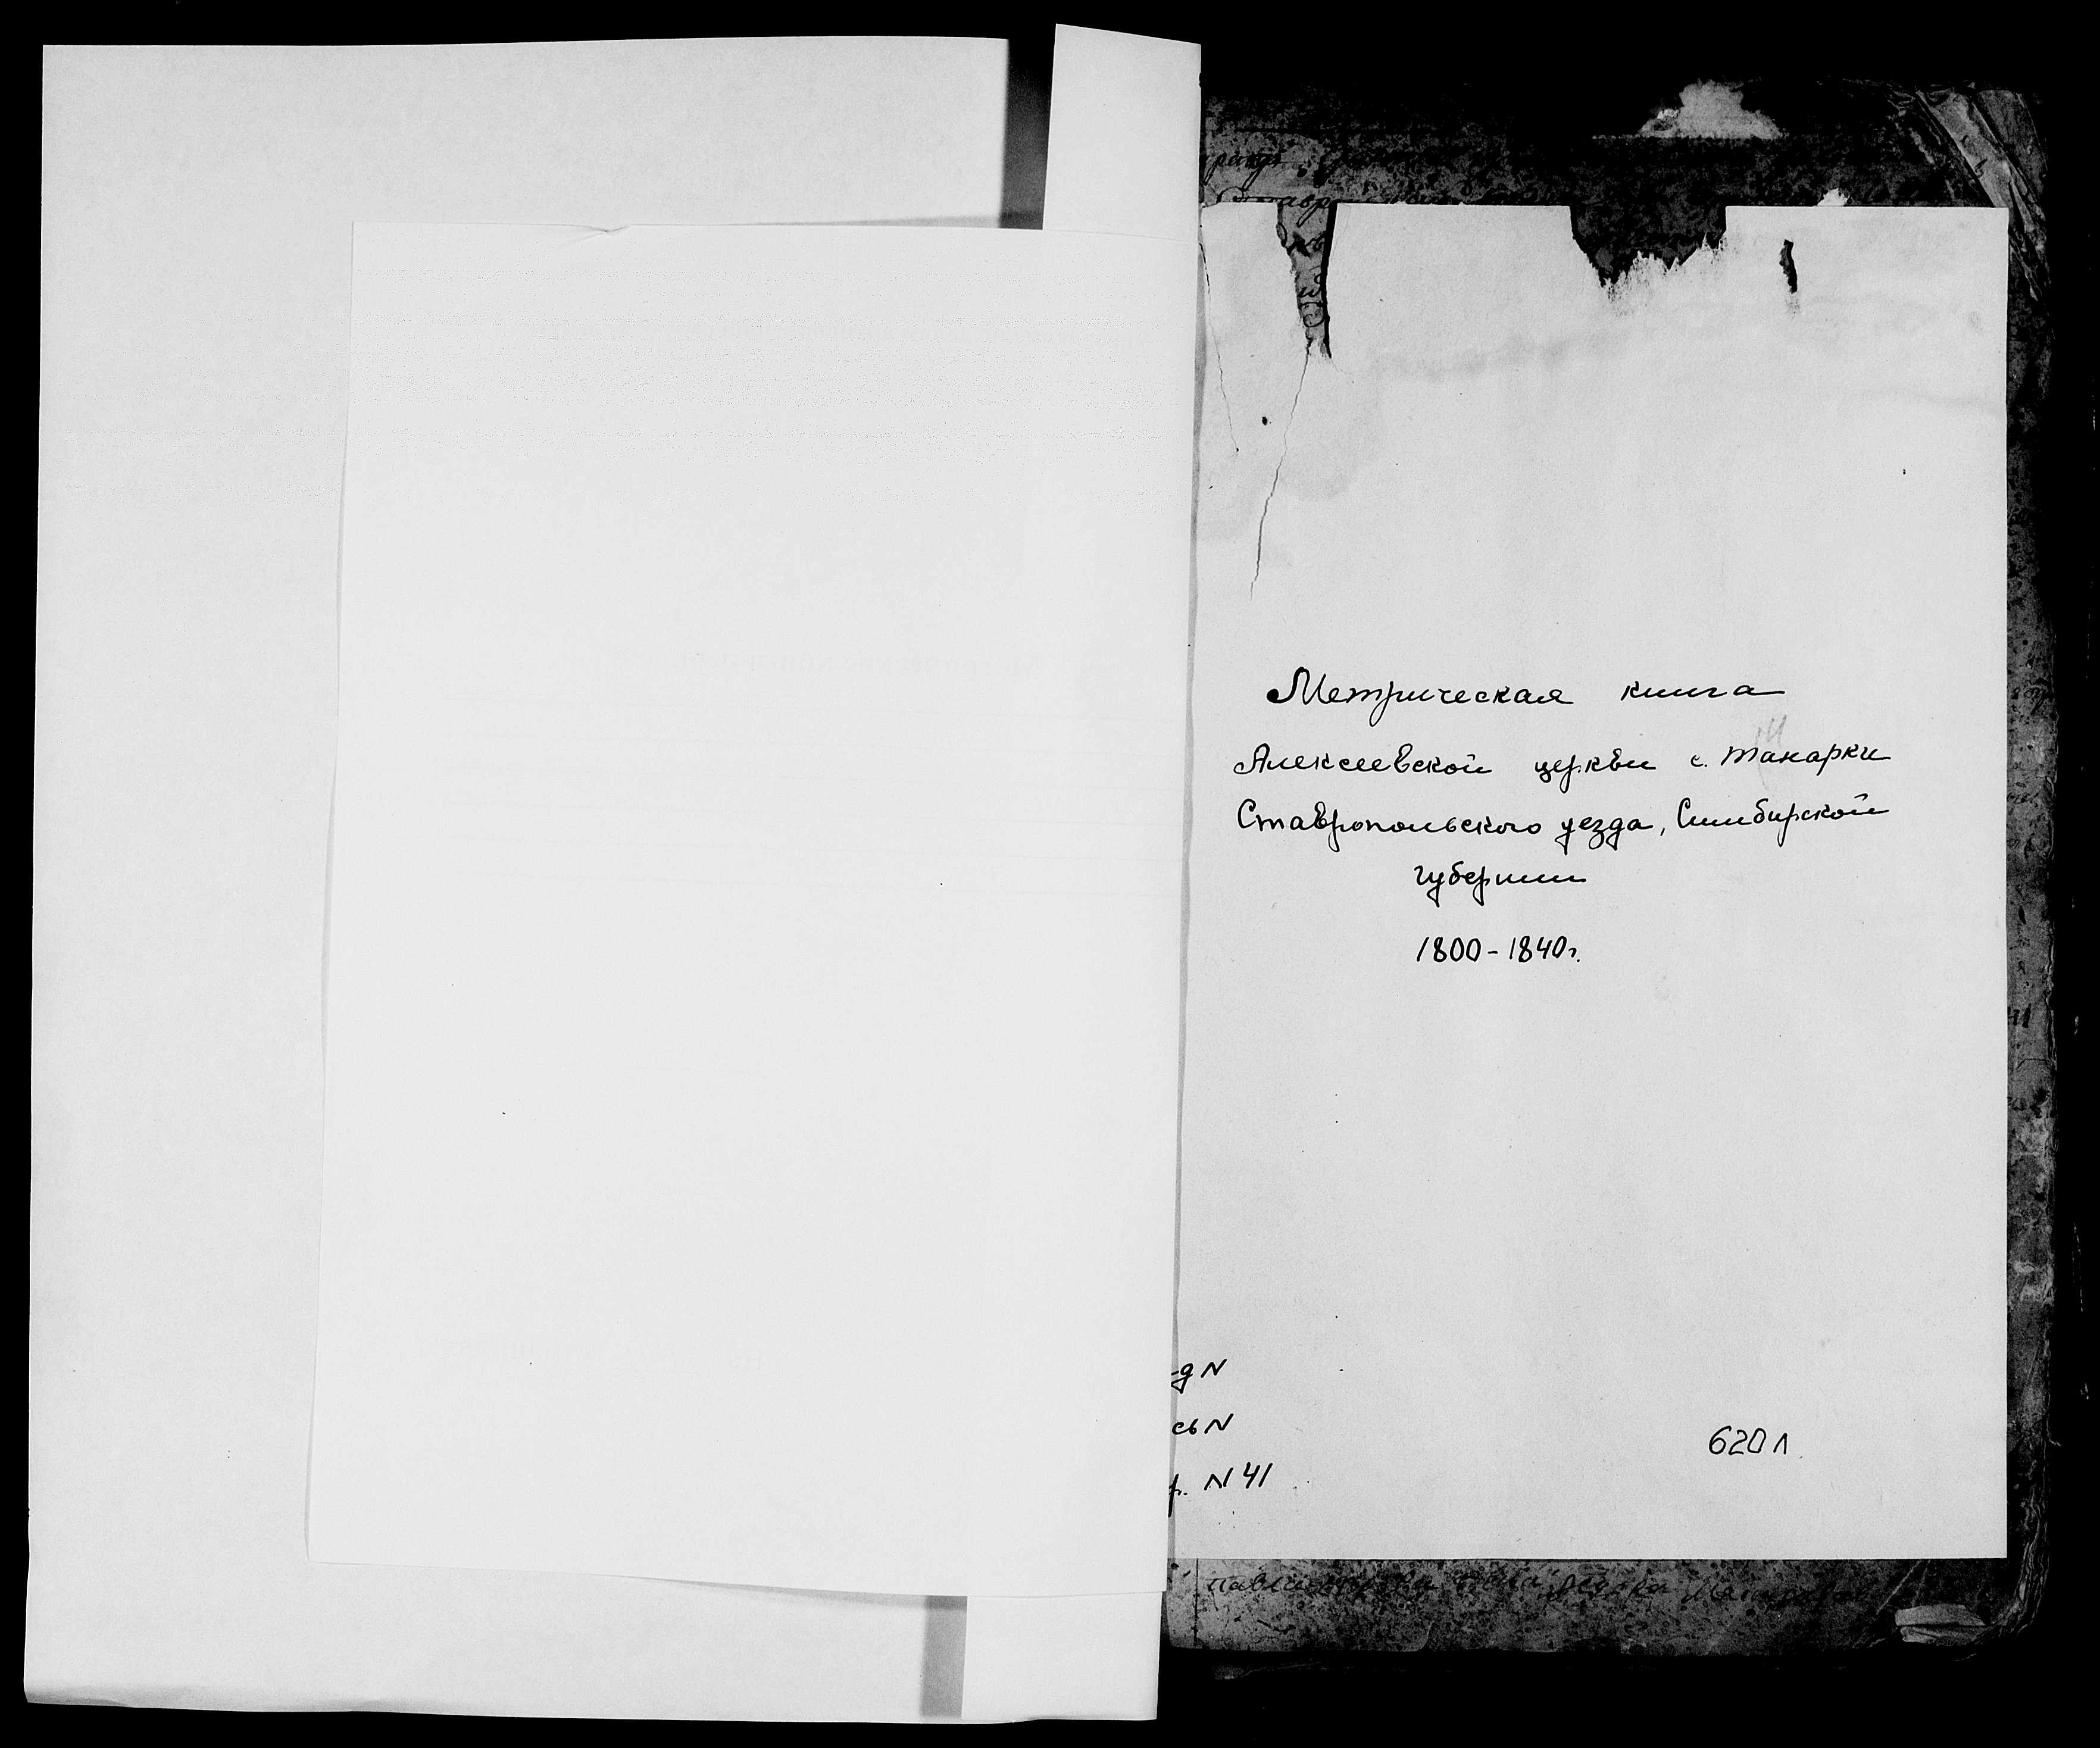 Метрическая книга
Алексеевской церкви с. Такарки
Ставропольского уезда, Симбирской
губернии
1800-1840г.
-д N
сь N
р. N 41
620 л